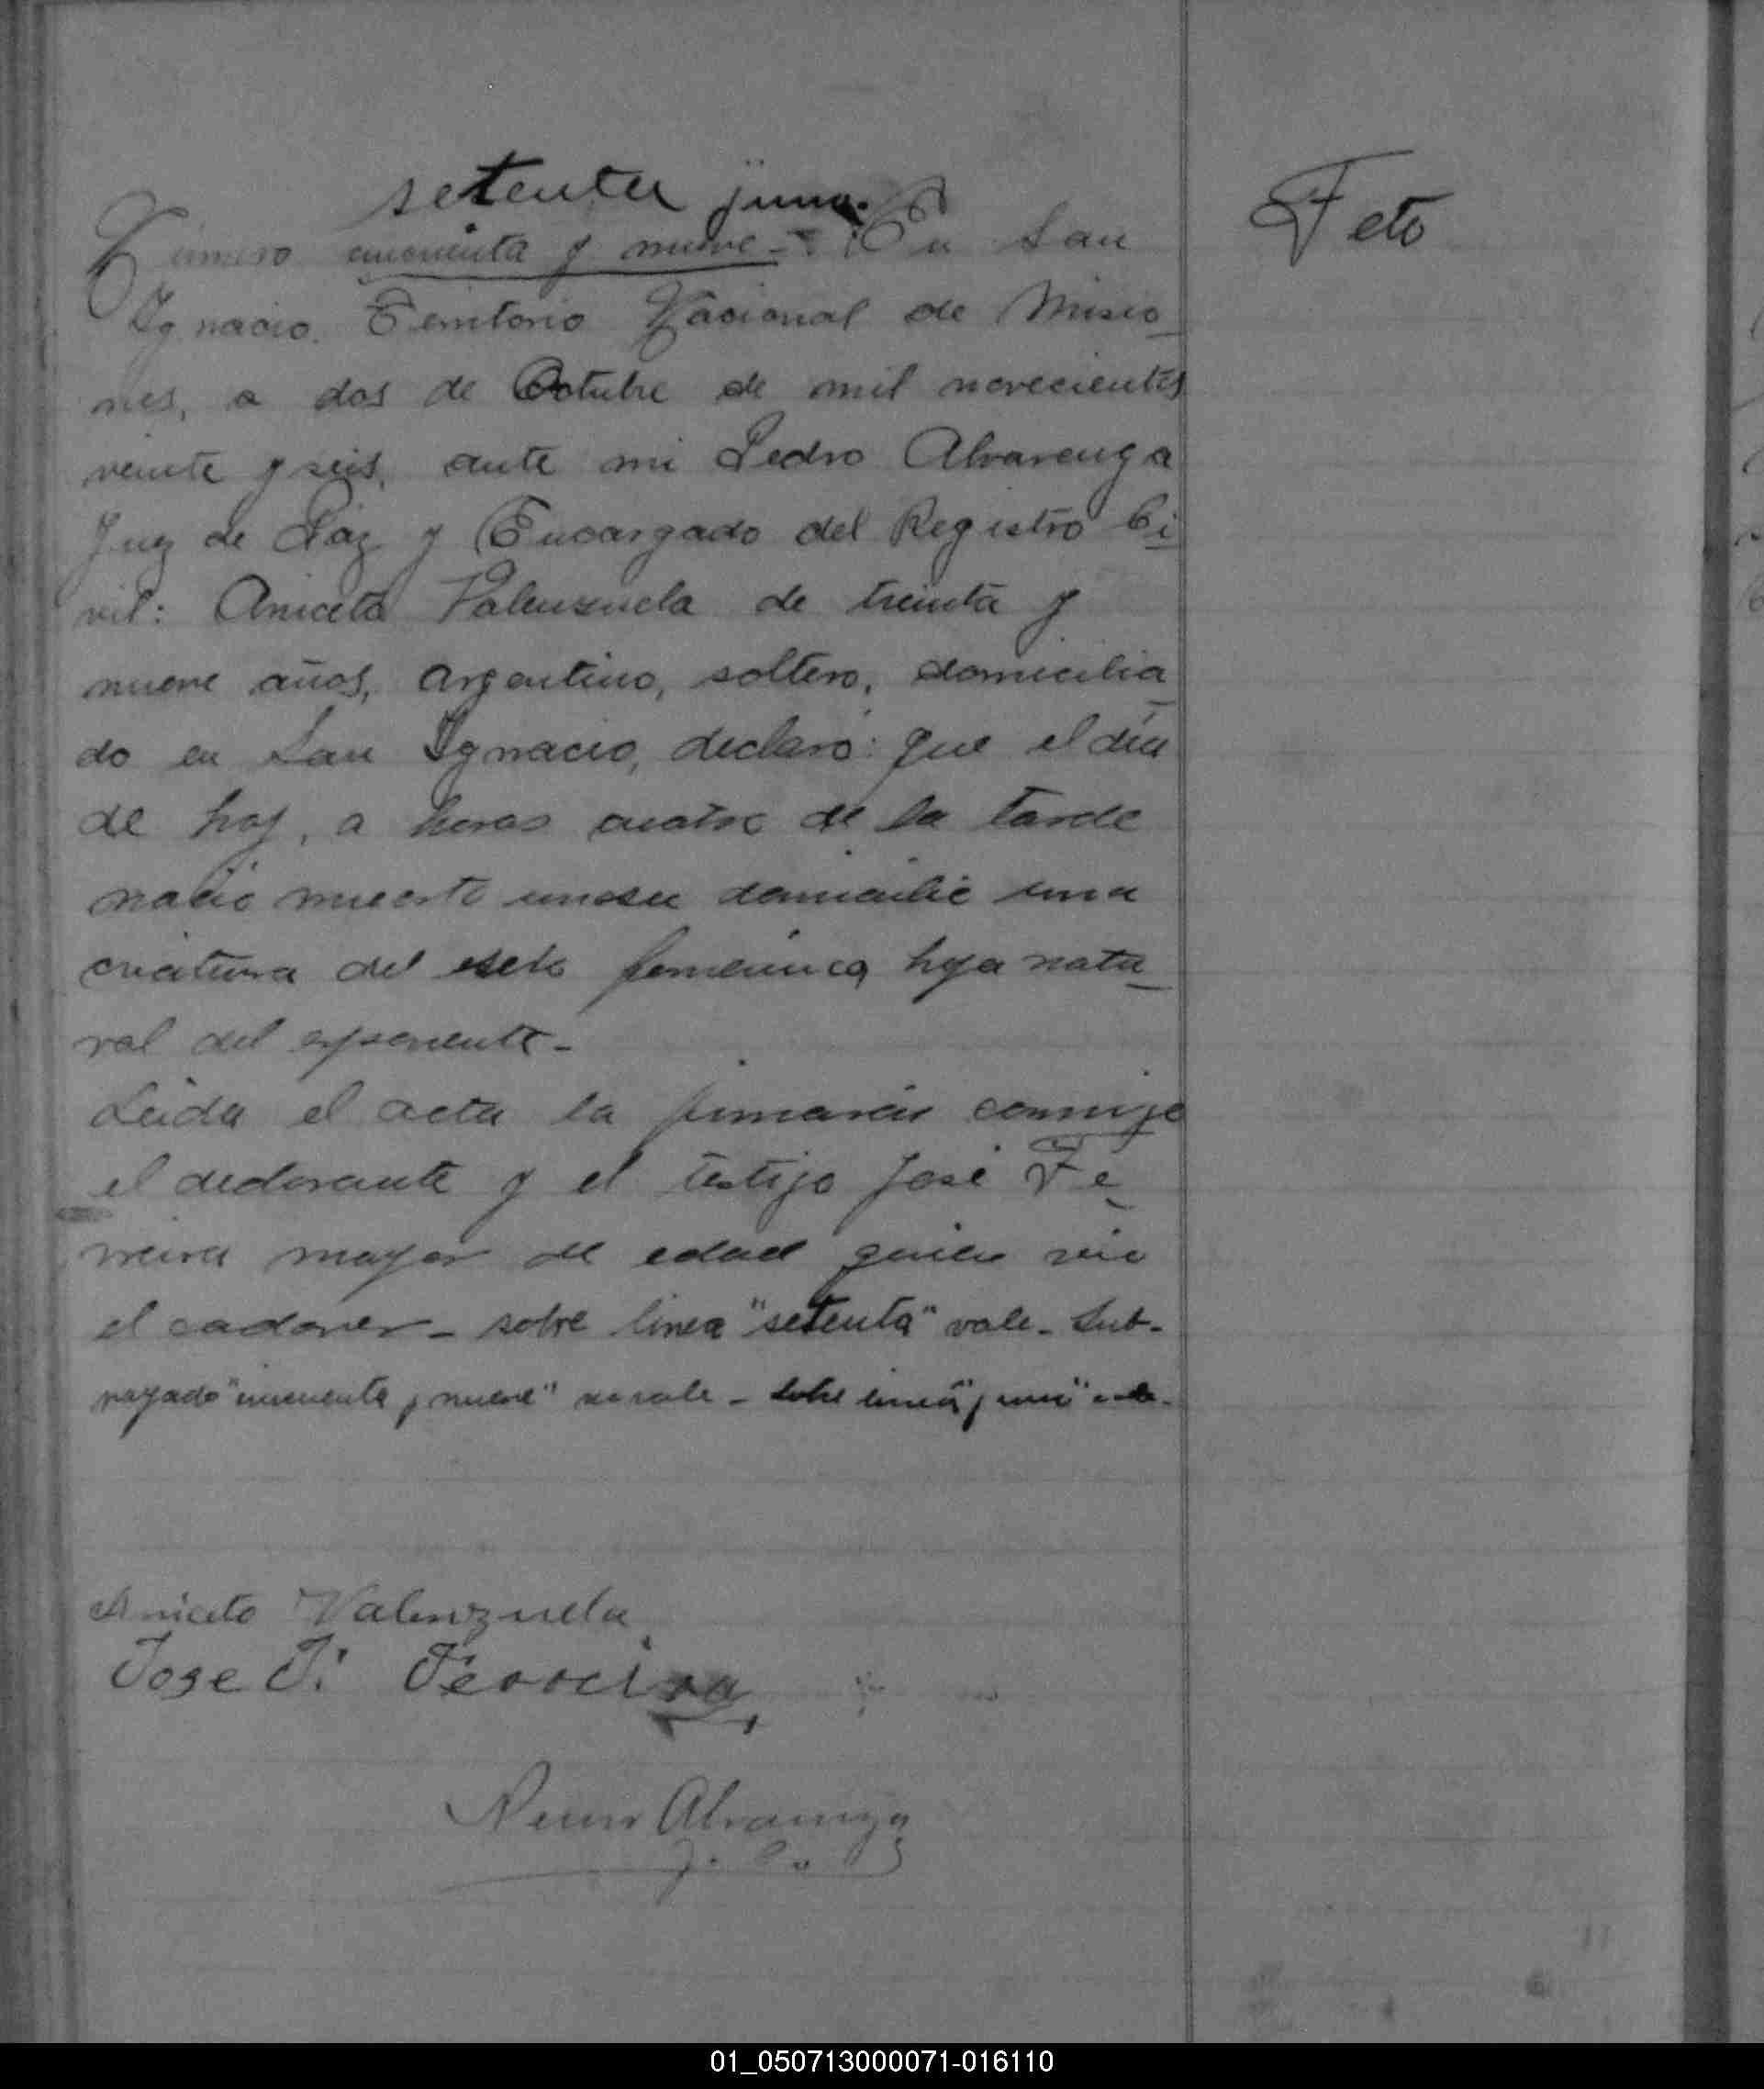 setenta y uno.
Feto
Número cincuenta y nueve - : En San
Ignacio. Territorio Nacional de Misio
nes, a dos de Octubre de mil novecientos
veinte y seis, ante mi Pedro Alvarenga
Juez de Paz y Encargado del Registro Ci
vil: Aniceto Valenzuela de treinta y
nueve años, argentino, soltero, domicilia
do en San Ignacio, declaró: que el día
de hoy, a horas cuatro de la tarde
nació muerta en su domicilio una
criatura del sexo femenino, hija natu
ral del exponente -
Leida el acta la firmarón conmigo
el declarante y el testigo José Fe
rreira mayor de edad quien vió
el cadaver - sobre linea "setenta" vale - Sub-
rayado "cincuenta y nueve" no vale - sobre linea "y uno" vale -
Aniceto Valenzuela
Jose Ferreira
Alvarenga
01_050713000071-016110